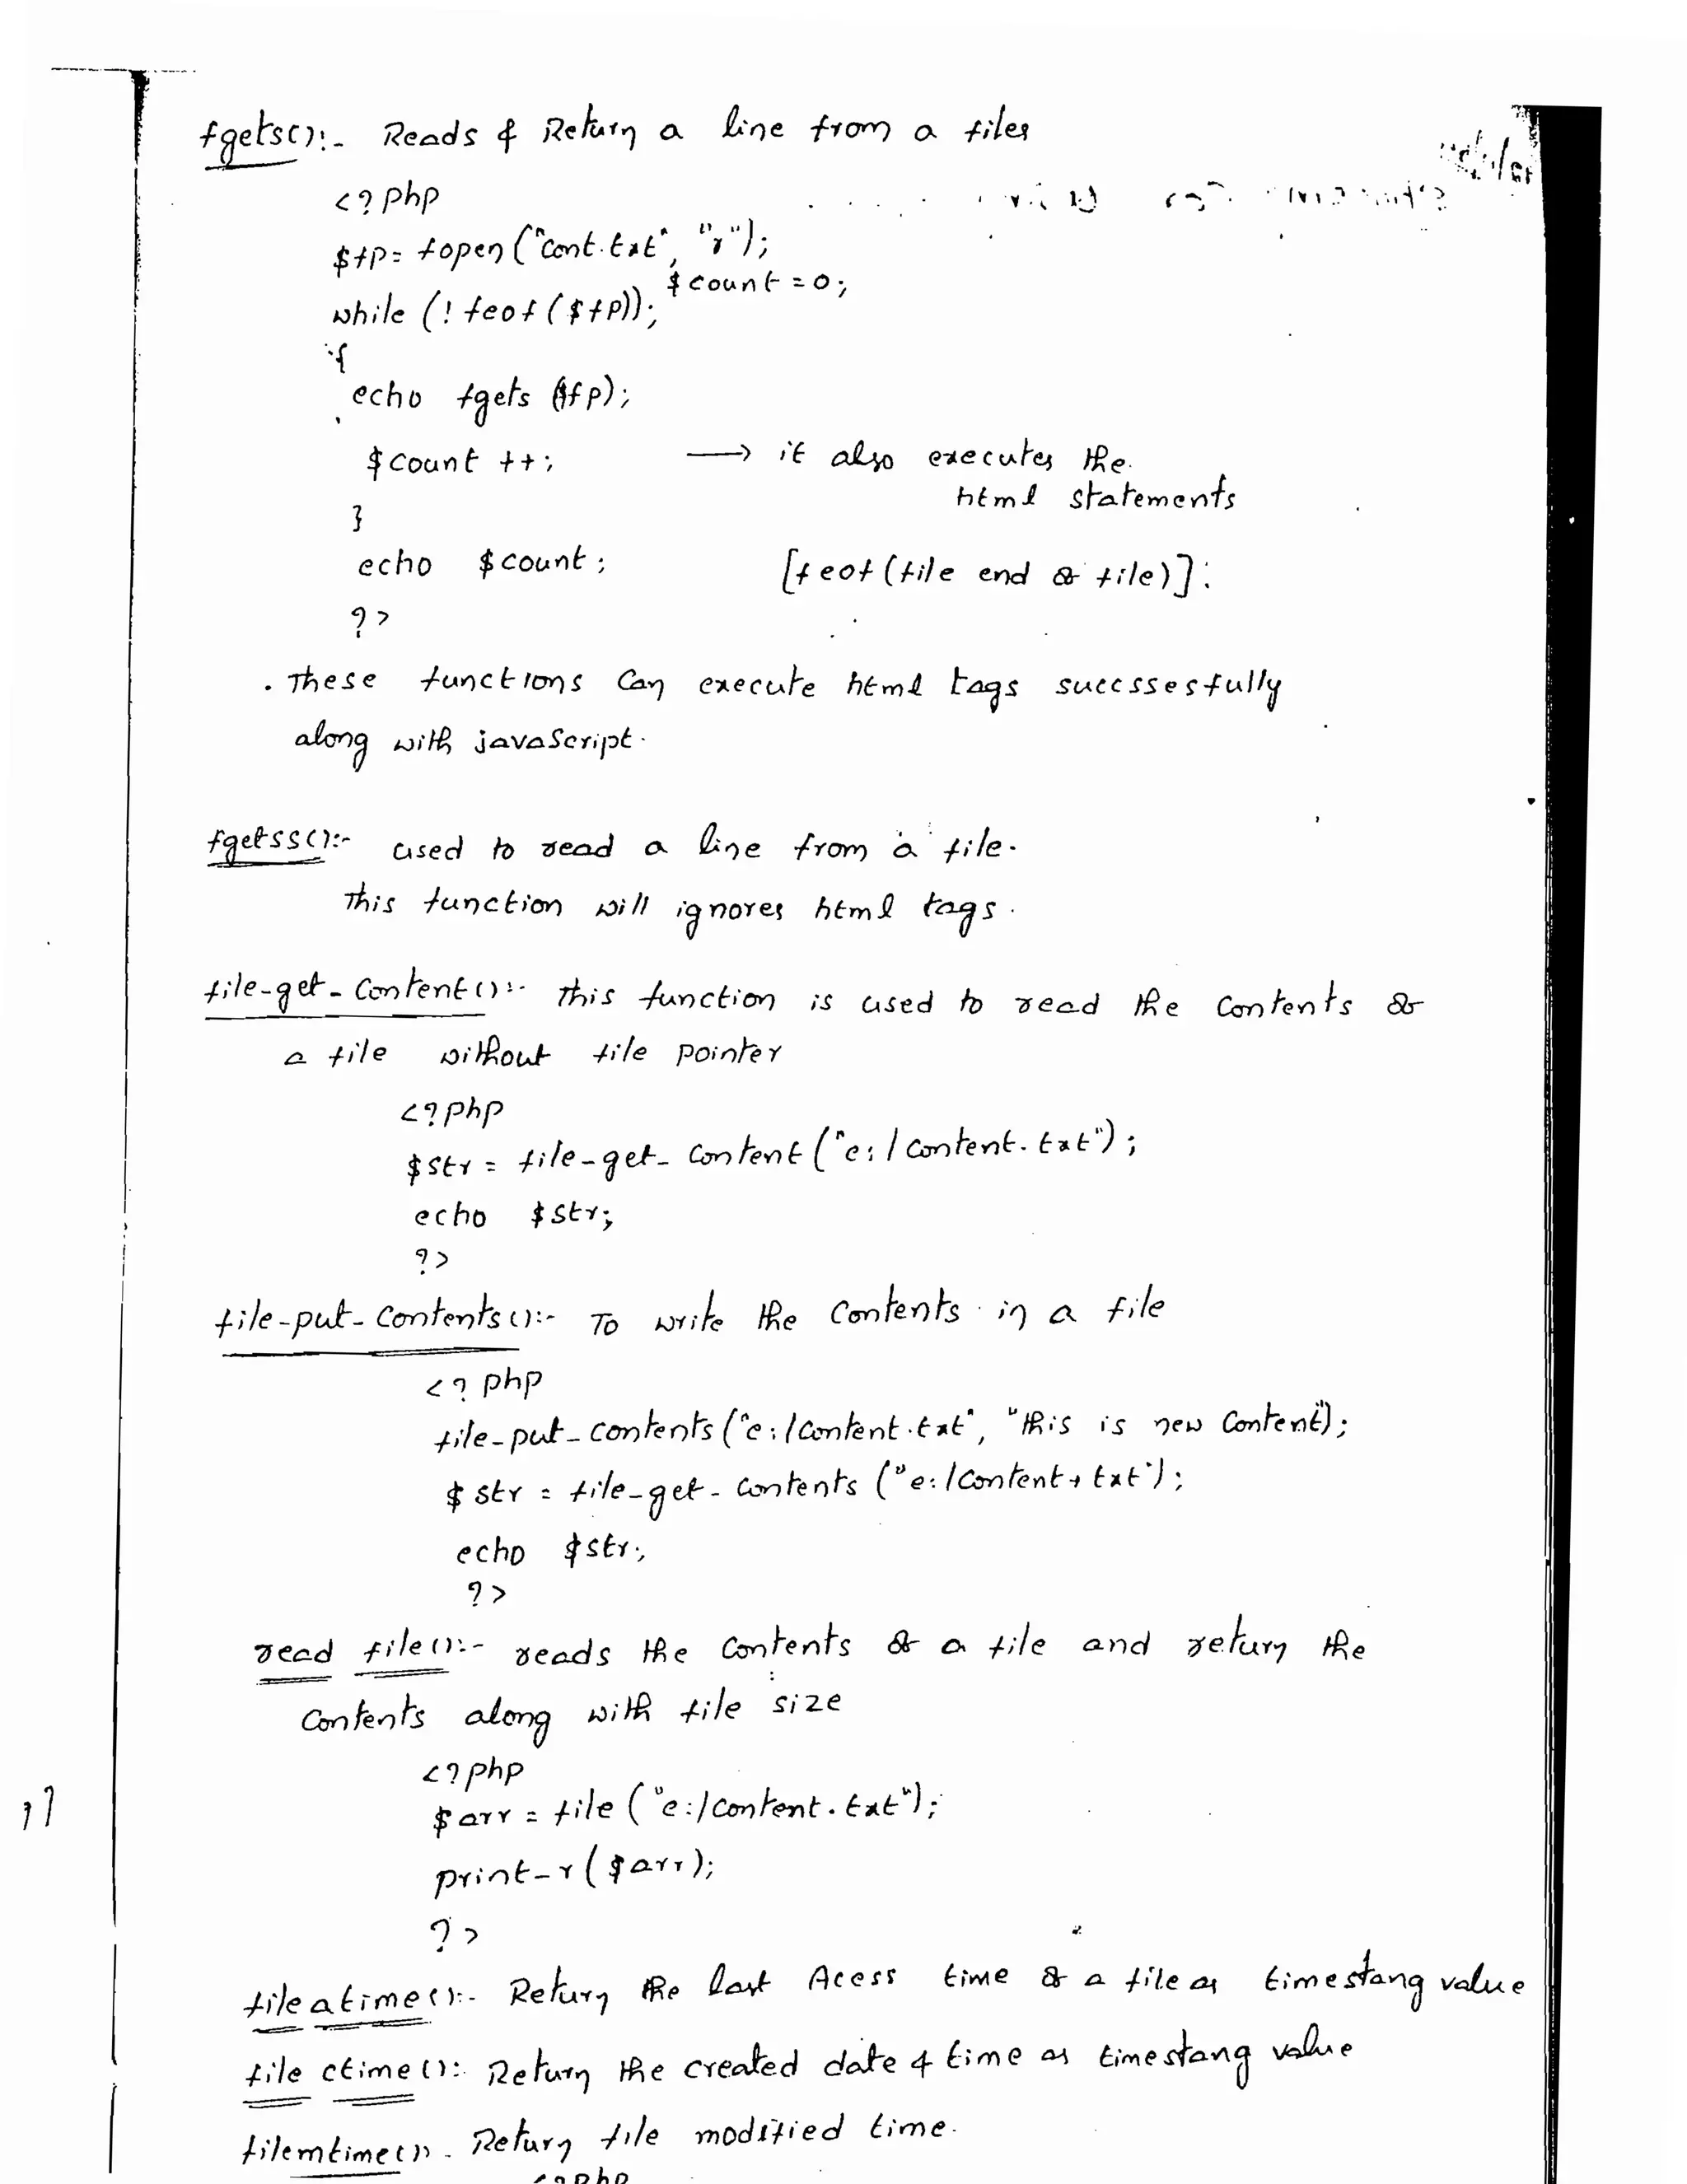 fgets():- Reads & Return a line from a files
<? php
$fp= fopen ("cont.txt", "r");
$count =0;
while (! feof ($fp));
{
echo fgets ($fp);
$count ++; → it also executes the
html statements
}
echo $count; [feof (file end of file)].
?>
. These functions Can execute html tags succssesfully
along with javaScript.
fgetss():- used to read a line from a file.
This function will ignores html tags.
file-get-Content():- This function is used to read the Contents of
a file without file pointer
<?php
$str = file-get-Content ("e:/Content.txt");
echo $str;
?>
file-put-Contents():- To write the Contents in a file
<? php
file-put-contents ("e:/Content.txt", "this is new Content");
$str = file-get-Contents ("e:/Content.txt");
echo $str;
?>
read file():- reads the Contents of a file and return the
Contents along with file size
<?php
$arr = file ("e:/Content.txt");
print-r ($arr);
?>
fileatime():- Return the last Acess time of a file as timestang value
file ctime(): Return the created date & time as timestang value
filemtime(). Return file modified time.
<?php